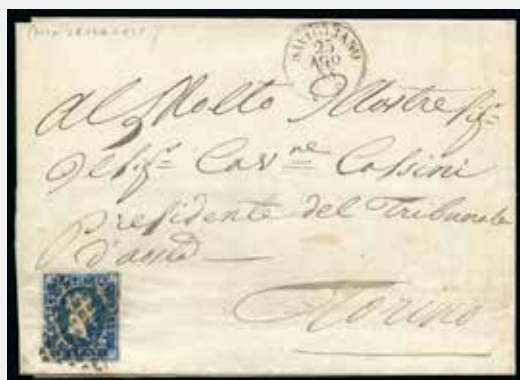 SAVIGLIANO
25
AGO
Al Molto Illustre Sig.r
Il Sig.r Cav.ne Cassini
Presidente del Tribunale
d'aosta
Torino